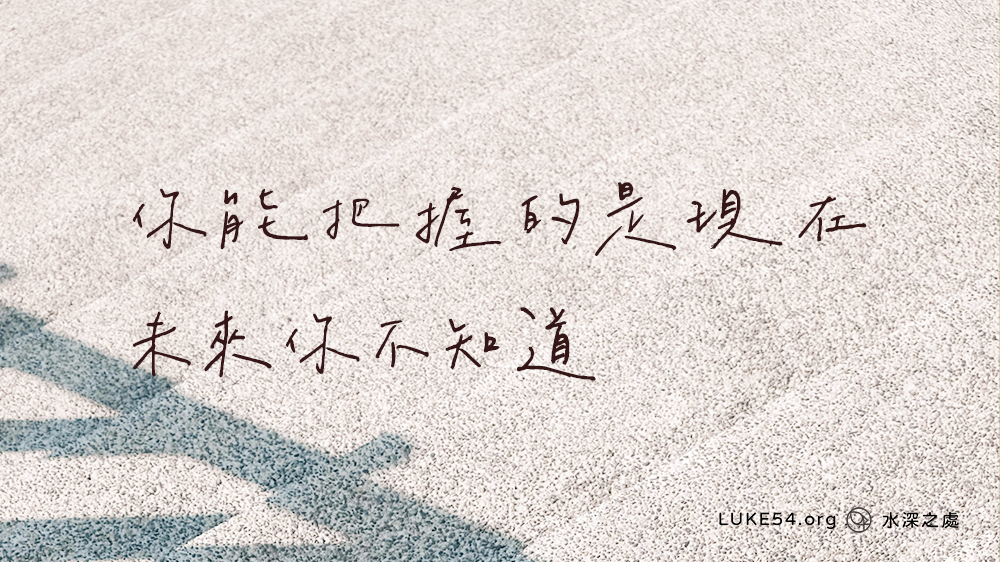 你能把握的是現在
未來你不知道
LUKE54.org 水深之處